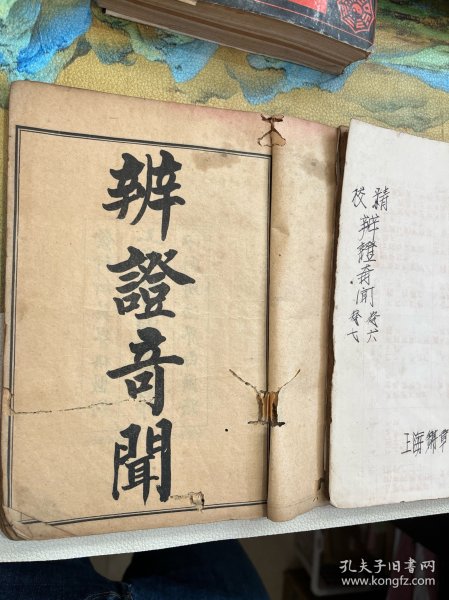 辨證奇聞
精校
辨證奇闻
卷六
卷七
上海錦章
孔夫子旧书网
www.kongfz.com